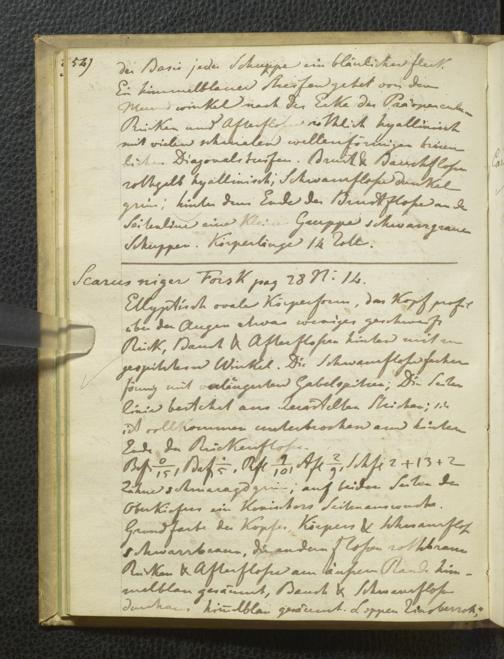 254)
der Basis jeder Schuppe ein bläulicher fleck.
Ein himmelblauer Streifen gehet von dem
Mundwinkel nach der Ecke des Praeoperculum
Rücken und Afterflosse röthlich hyallinisch
mit vielen schmalen wellenförmigen bräun
lichen Diagonalstreifen. Brust & Bauchflosse
rothgelb hyallinisch; Schwanzflosse dunkel
grün; hinter dem Ende der Brustflosse an der
Seitenlinie eine kleine Gruppe schwarzgrauer
Schuppen. Körperlänge 14 Zoll.
Scarus niger Forsk pag 28 N: 14.
Ellyptisch ovale Körperform, das Kopf profil
über den Augen etwas weniges geschweift
Rück, Bauch & Afterflossen hinten mit
gespitztem Winkel. Die Schwanzflosse
förmig mit verlängerten Gabelspitzen; Die Seiten
linie bestehet aus Strichen; sie
ist vollkommen unterbrochen am hintern
Ende der Rückenflosse.
Brf 0/15, Bcf 1/5, Rfl 9/10, Afl 2/9, Schfl 2+13+2
Zähne schmaragdgrün; auf beiden Seiten des
Oberkiefers ein Seitenauswuchs.
Grundfarbe des Kopfes, Körpers & Schwanzflosse
schwarzbraun, die andern flossen rothbraun
Rücken & Afterflosse am äußern Rande him-
melblau gesäumt, Bauch & Schwanzflosse
durchaus himmelblau gesäumt. Lippen Zinoberroth,